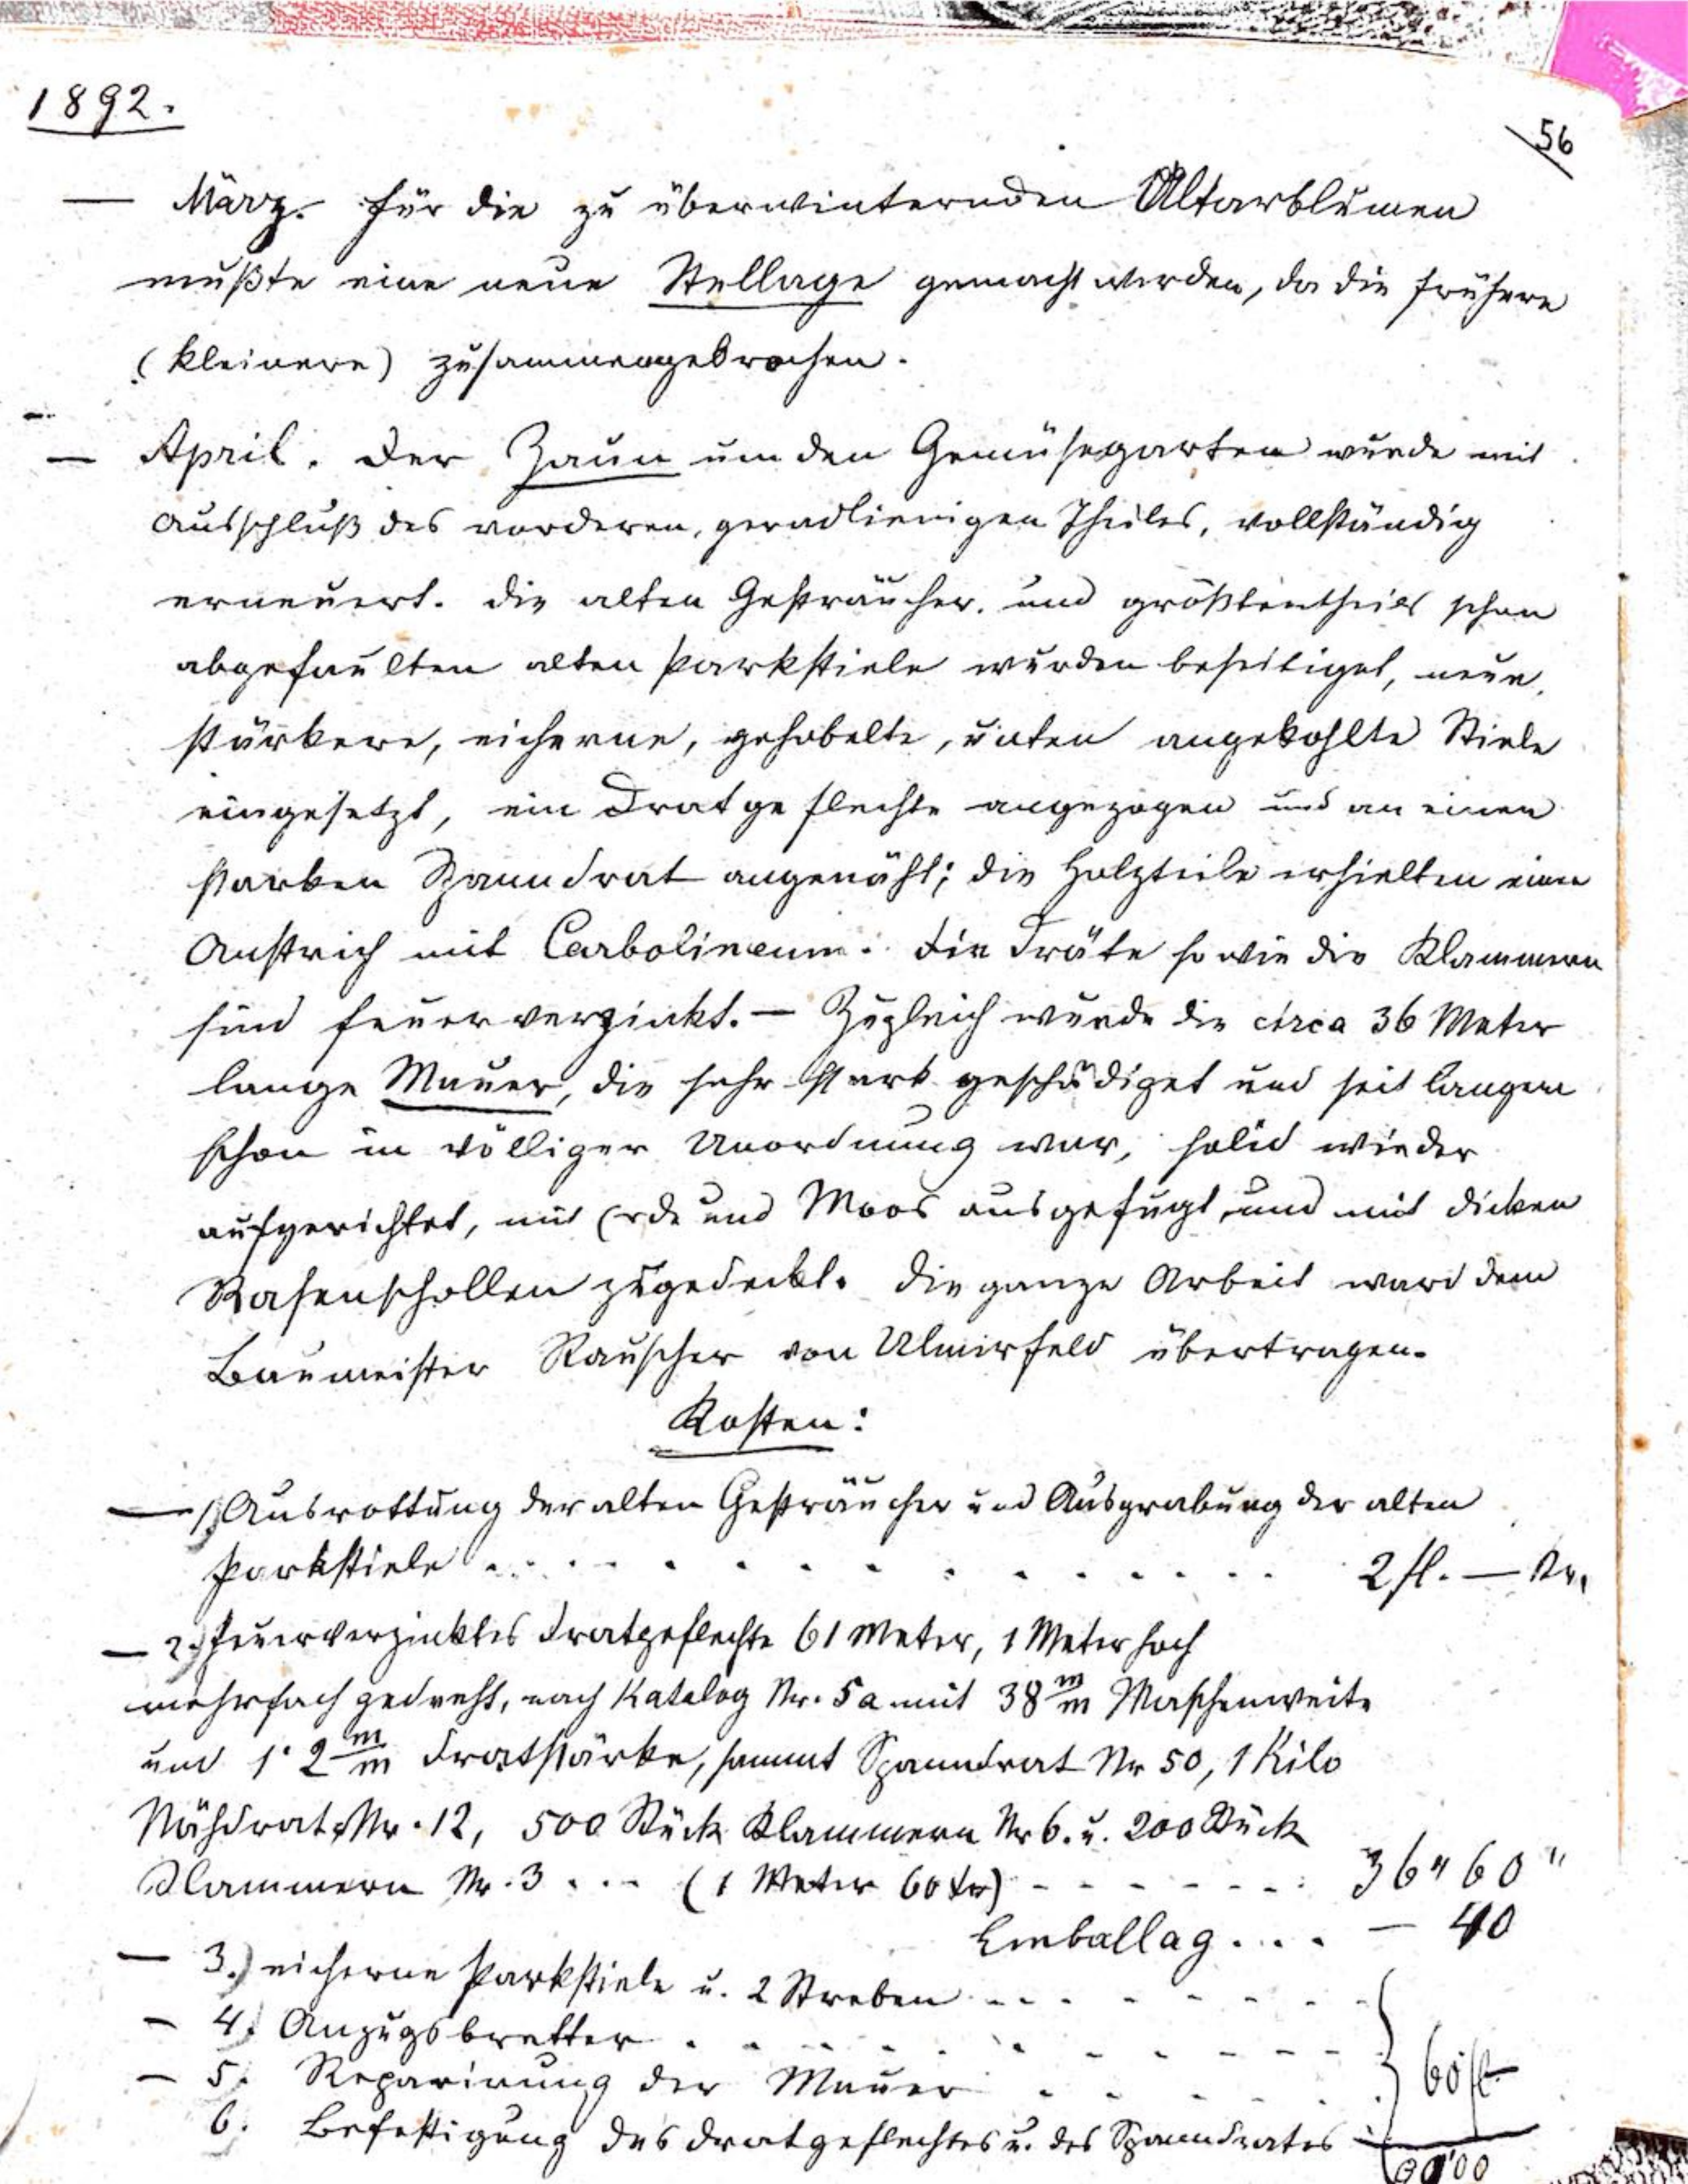 1892.
56
— März. Für die zu überwinternden Altarblumen
mußte eine neue Stellage gemacht werden, da die frühere
(kleinere) zusammengebrochen.
— April. Der Zaun um den Gemüsegarten wurde mit
Ausschluß des vorderen, geradlienigen Theiles, vollständig
erneuert. Die alten Gesträucher. und größtentheils schon
abgefaulten alten Parkstiele wurden beseitiget, neue,
stärkere, eicherne, gehobelte, unten angekohlte Stiele
eingesetzt, ein Dratgeflechte angezogen und an einen
starken Spanndrat angenäht; die Holzteile erhielten einen
Anstrich mit Carbolineum. Die Dräte sowie die Klammern
sind feuerverzinkt. — Zugleich wurde die circa 36 Meter
lange Mauer, die sehr stark geschädiget und seit langem
schon in völliger Unordnung war, solid wieder
aufgerichtet, mit Erde und Moos ausgefugt und mit dicken
Rasenschollen zugedeckt. Die ganze Arbeit ward dem
Baumeister Rauscher von Ulmirfeld übertragen.
Kosten:
— 1.) Ausrottung der alten Gesträucher und Ausgrabung der alten
Parkstiele . . . . . . . . . . . . . 2 fl. — Kr.
— 2.) Feuerverzinktes Dratgeflechte 61 Meter, 1 Meter hoch
mehrfach gedreht, nach Katalog Nr. 5a mit 38 m/m Maschenweite
und 1·2 m/m Dratstärke, sammt Spanndrat Nr 50, 1 Kilo
Nähdrat Nr. 12, 500 Stück Klammern Nr 6. u. 200 Stück
Klammern Nr. 3 . . . (1 Meter 60 kr) - - - - - - - 36 " 60 "
Emballag . . . . — 40
— 3.) eicherne Parkstiele u. 2 Streben - - - - - - -
— 4.) Anzugsbretter . . . . . . . . . .
— 5. Reparirung der Mauer . . . . . . } 60 fl
6. Befestigung des Dratgeflechtes u. des Spanndrates